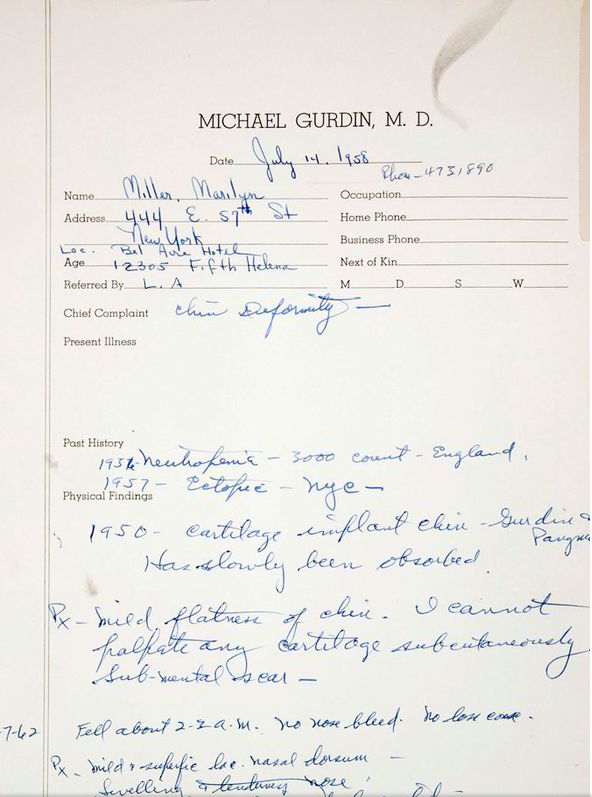 MICHAEL GURDIN, M. D.
Date July 14, 1958
Phone - 4731890
Name Miller, Marilyn
Occupation
Address 444 E. 57th St
Home Phone
New York
Business Phone
Loc. Bel Aire Hotel
Age 12305 Fifth Helena
Next of Kin
Referred By L. A
M D S W
Chief Complaint Chin Deformity —
Present Illness
Past History
Neutropenia - 3000 count - England.
1957 - Ectopic - nyc -
Physical Findings
1950 - cartilage implant chin - Gurdin &
Has slowly been absorbed.
Px - mild flatness of chin. I cannot
palpate any cartilage subcutaneously
Sub-mental scar -
-7-62
Fell about 2-3 a.m. No nose bleed. No loss
Px - mild & superfic lac. nasal dorsum -
Swelling & nose